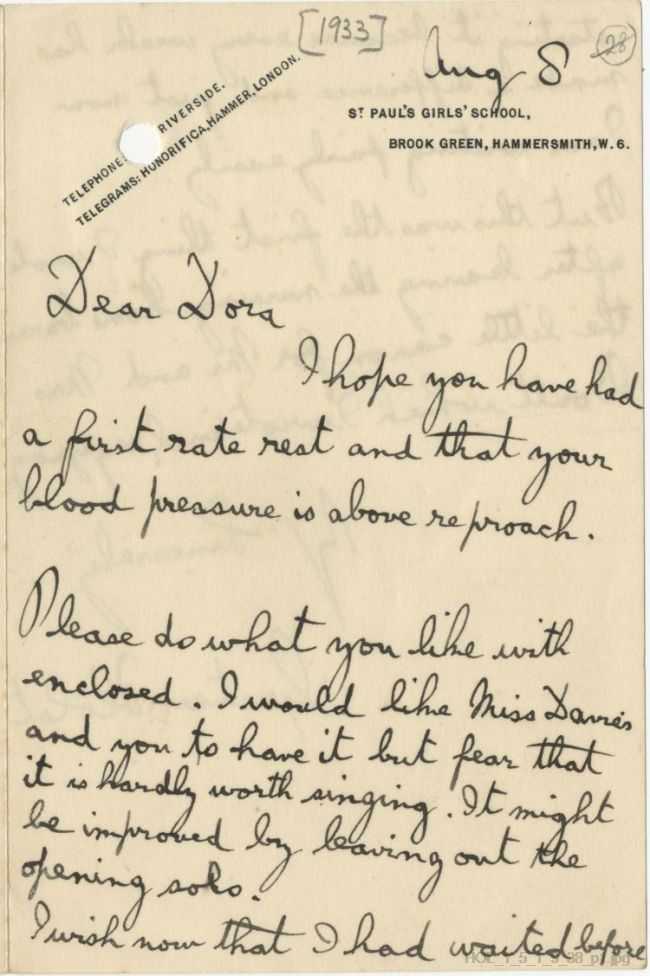 [1933]
28
Aug 8
TELEPHONE: RIVERSIDE.
TELEGRAMS: HONORIFICA, HAMMER, LONDON.
ST PAUL'S GIRLS' SCHOOL,
BROOK GREEN, HAMMERSMITH, W. 6.
Dear Dora
I hope you have had
a first rate rest and that your
blood pressure is above reproach.
Please do what you like with
enclosed. I would like Miss Davies
and you to have it but fear that
it is hardly worth singing. It might
be improved by leaving out the
opening solo.
I wish now that I had waited before